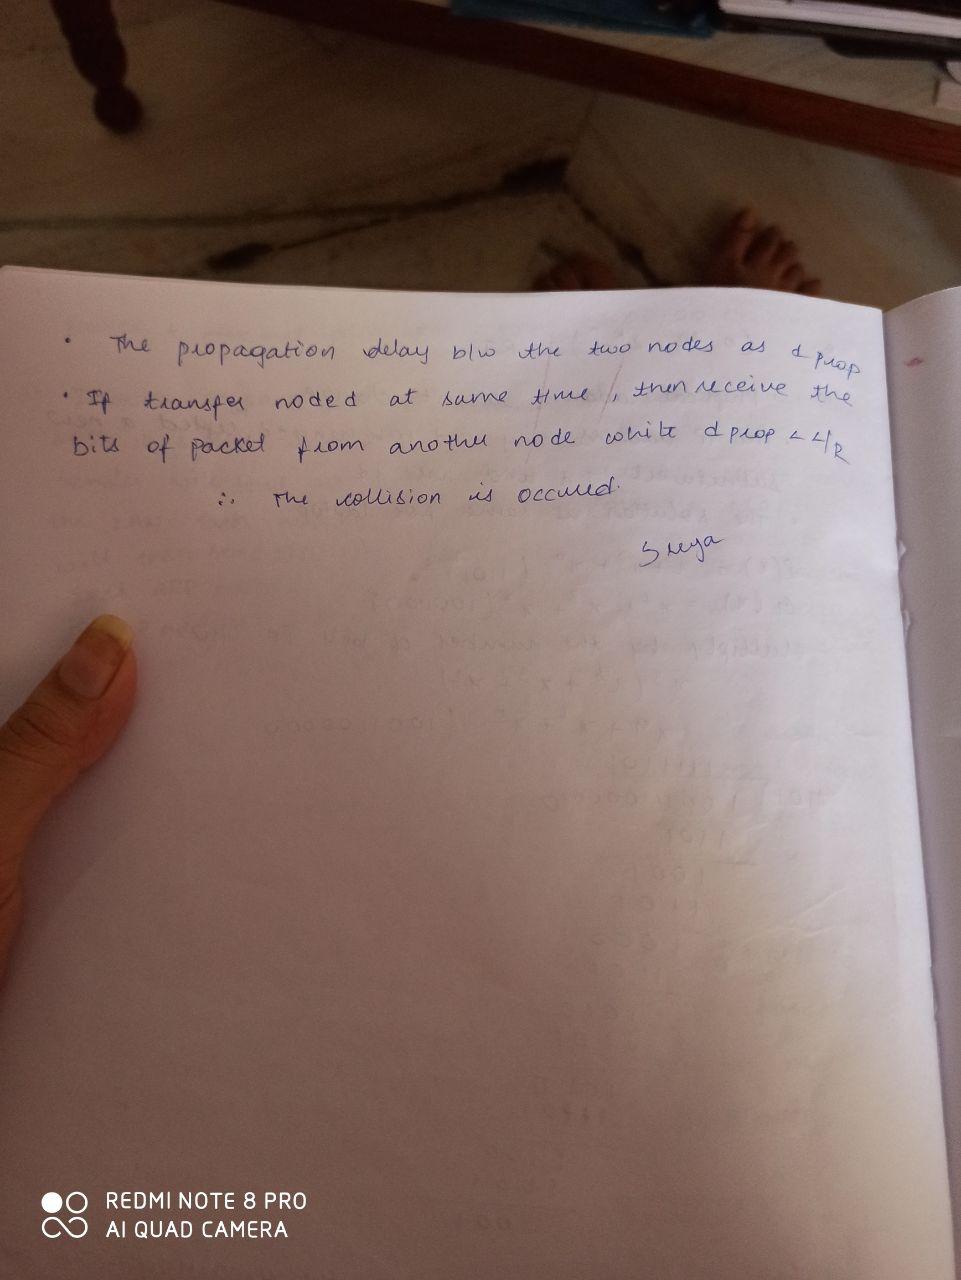 • The propagation delay b/w the two nodes as d prop
• If transfer noded at same time, then receive the
bits of packet from another node while d prop < L/R
∴ The collision is occured.
REDMI NOTE 8 PRO
AI QUAD CAMERA